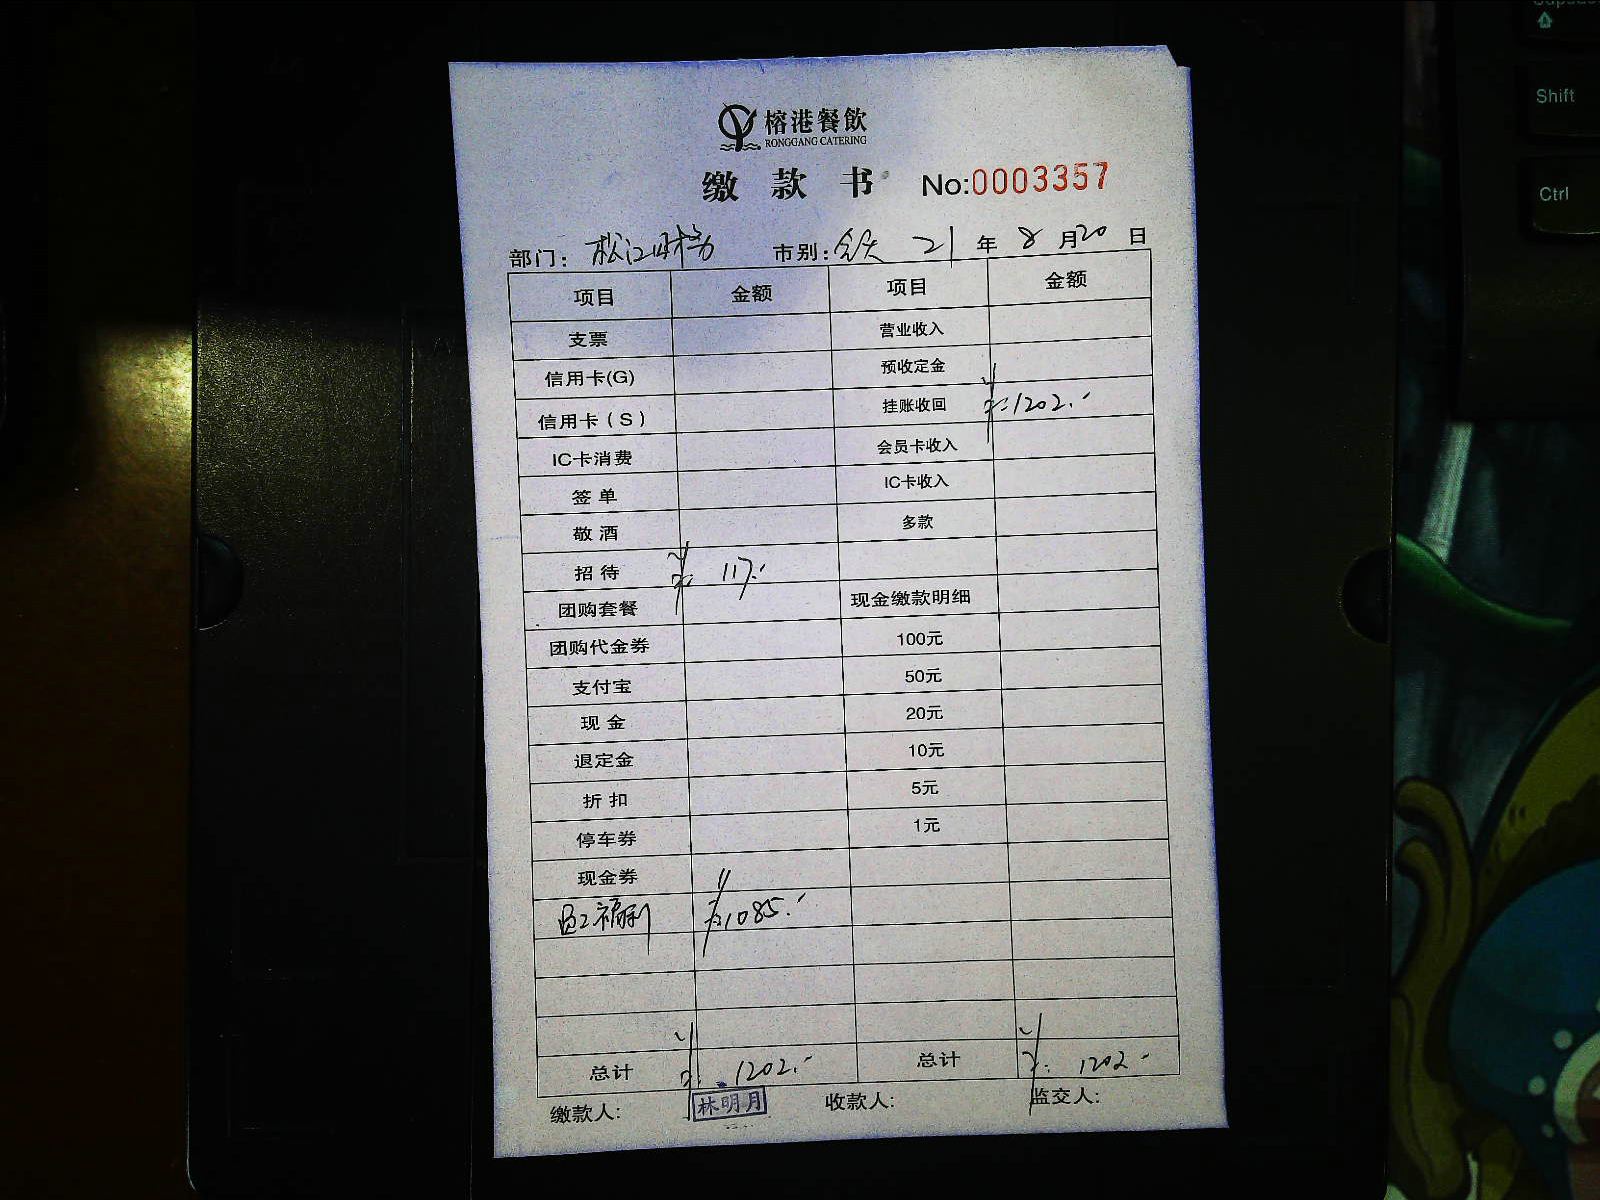 榕港餐飲
RONGGANG CATERING
缴款书 No:0003357
部门: 松江财务 市别: 全天 21年8月20日
项目 金额 项目 金额
支票 营业收入
信用卡(G) 预收定金
信用卡(S) 挂账收回 ¥:1202.-
IC卡消费 会员卡收入
签单 IC卡收入
敬酒 多款
招待 ¥: 117.-
团购套餐 现金缴款明细
团购代金券 100元
支付宝 50元
现金 20元
退定金 10元
折扣 5元
停车券 1元
现金券
员工福利 ¥:1085.-
总计 ¥: 1202.- 总计 ¥: 1202.-
缴款人: 林明月 收款人: 监交人:
Shift
Ctrl